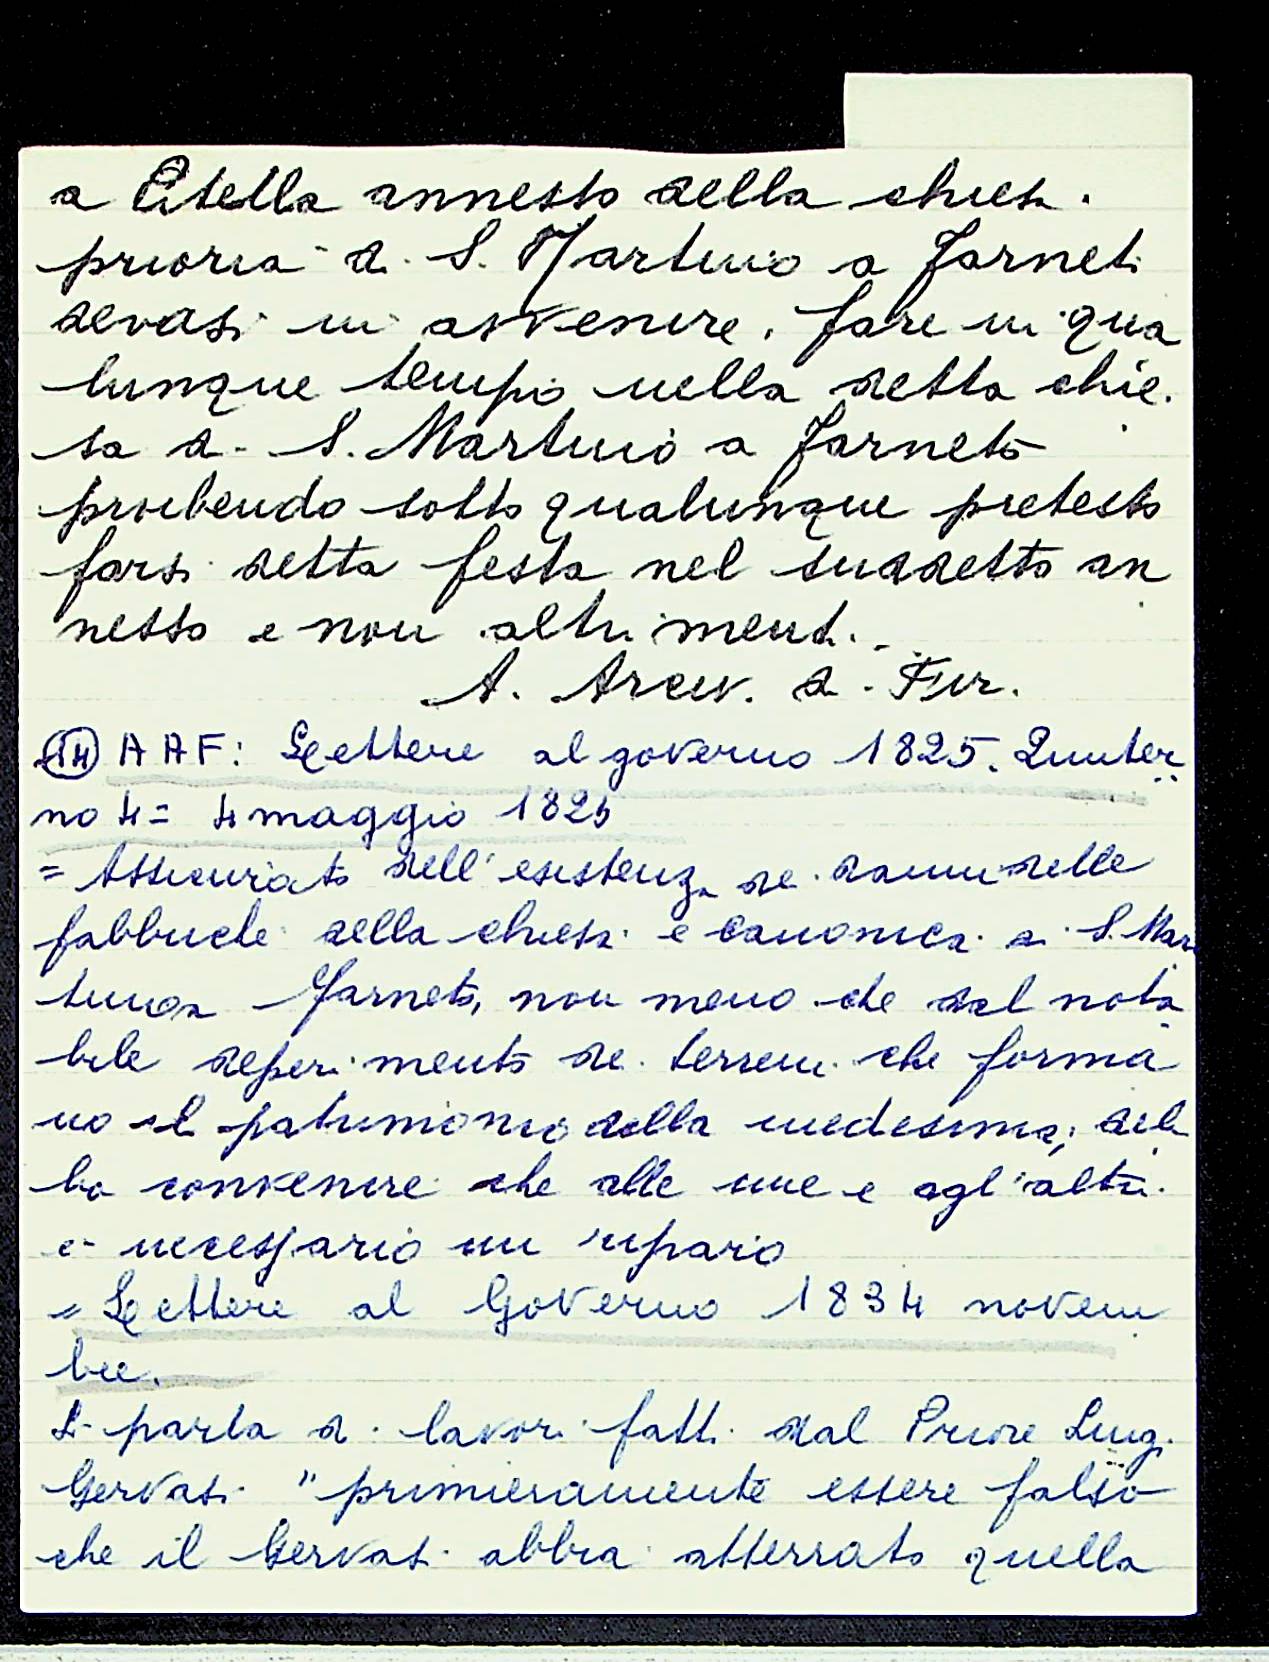 a Citella annesso della chiesa
prioria di S. Martino a Farneti
devasi in avvenire, fare in qua
lunque tempo nella detta chie.
sa di S. Martino a Farneto
proibendo sotto qualunque pretesto
farsi detta festa nel suddetto an
nesso e non altrimenti.
A. Arciv. di Fir.
(14) AAF: Lettere al governo 1825. Quinter
no 4 = 4 maggio 1825
= Assicurato dell'esistenza dei danni delle
fabbriche della chiesa e canonica di S. Mar
tino a Farneto, non meno che del nota
bile deperimento dei terreni che forma
no il patrimonio della medesima; deb
bo convenire che alle une e agl'altri
è necessario un riparo
= Lettere al Governo 1834 novem
bre.
Si parla di lavori fatti dal Priore Luigi
Gervasi "primieramente essere falso
che il Gervasi abbia atterrato quella